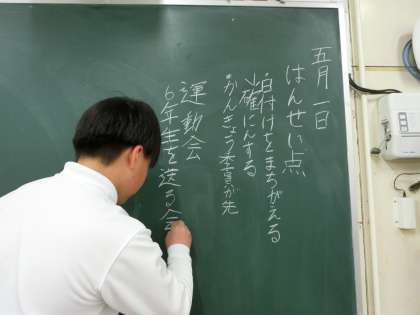 五月一日
はんせい点
・日付けをまちがえる
↓確にんする
・かんきょう が先
運動会
6年生を送る会